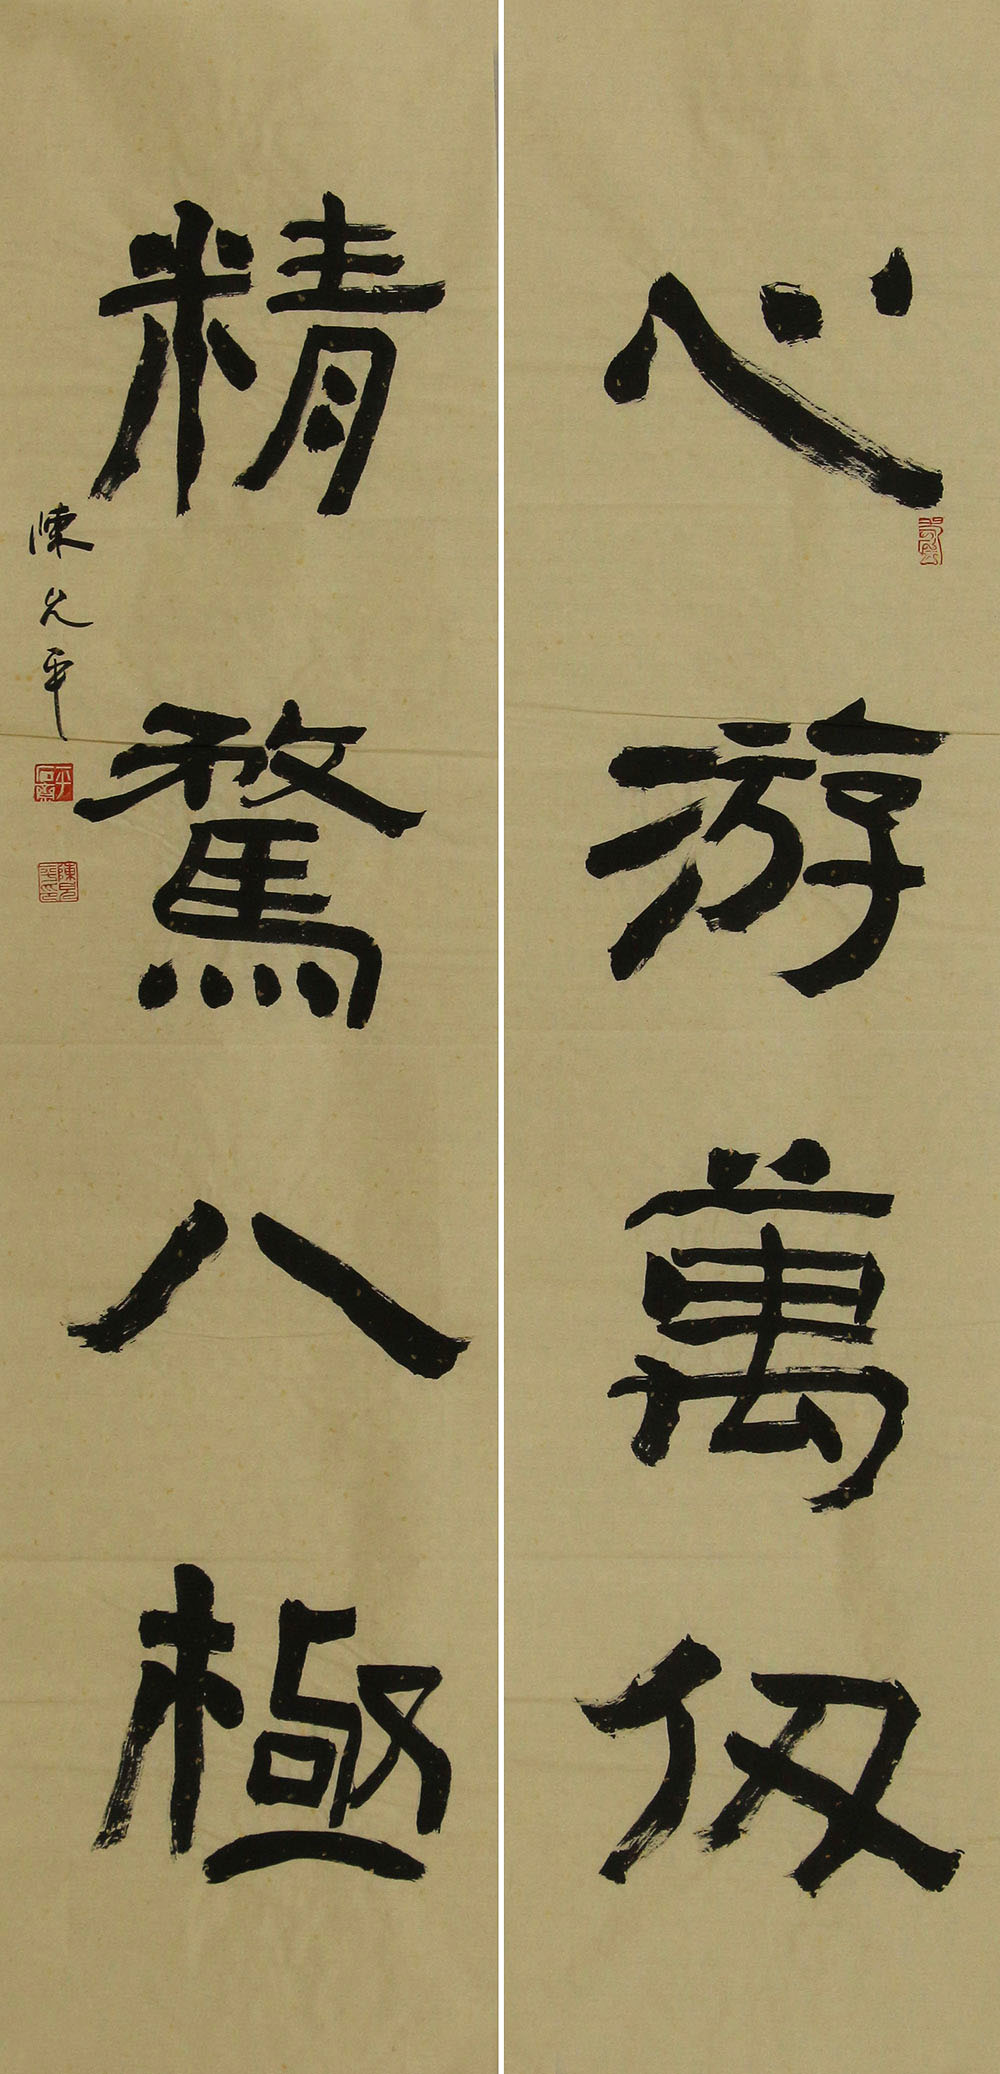 心游萬仞
精騖八極
陳允平